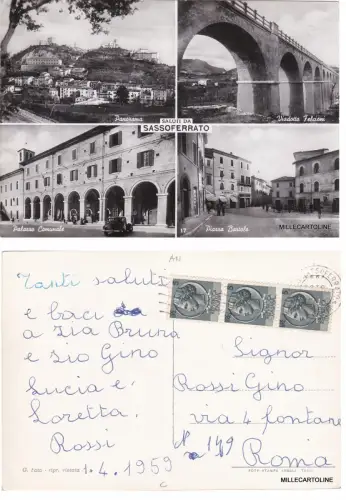 Panorama
Viadotto Felcioni
SALUTI DA
SASSOFERRATO
Palazzo Comunale
17
Piazza Bartolo
MILLECARTOLINE
AN
Tanti saluti
e baci
a Zia Bruna
e Zio Gino
Lucia e
Loretta
Rossi
1.4.1959
Signor
Rossi Gino
via 4 fontane
N 149
Roma
MILLECARTOLINE